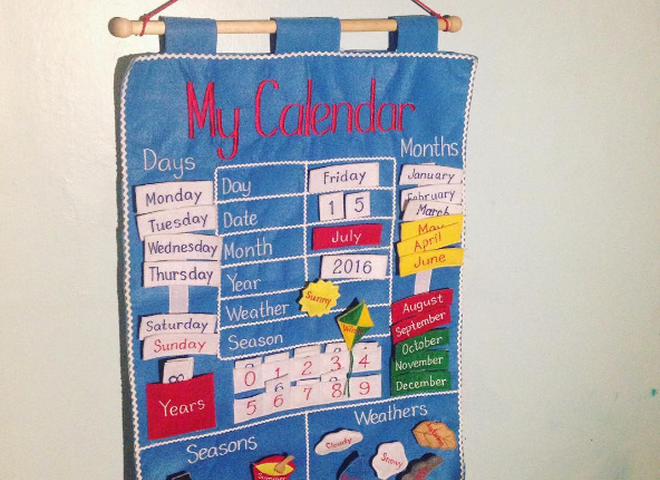 My Calendar
Days
Months
Monday
Tuesday
Wednesday
Thursday
Saturday
Sunday
8
Years
Day
Friday
Date
1 5
Month
July
Year
2016
Weather
Sunny
Season
0 1 2 3 4
5 6 7 8 9
January
February
March
May
April
June
August
September
October
November
December
Seasons
Summer
Weathers
Cloudy
Snowy